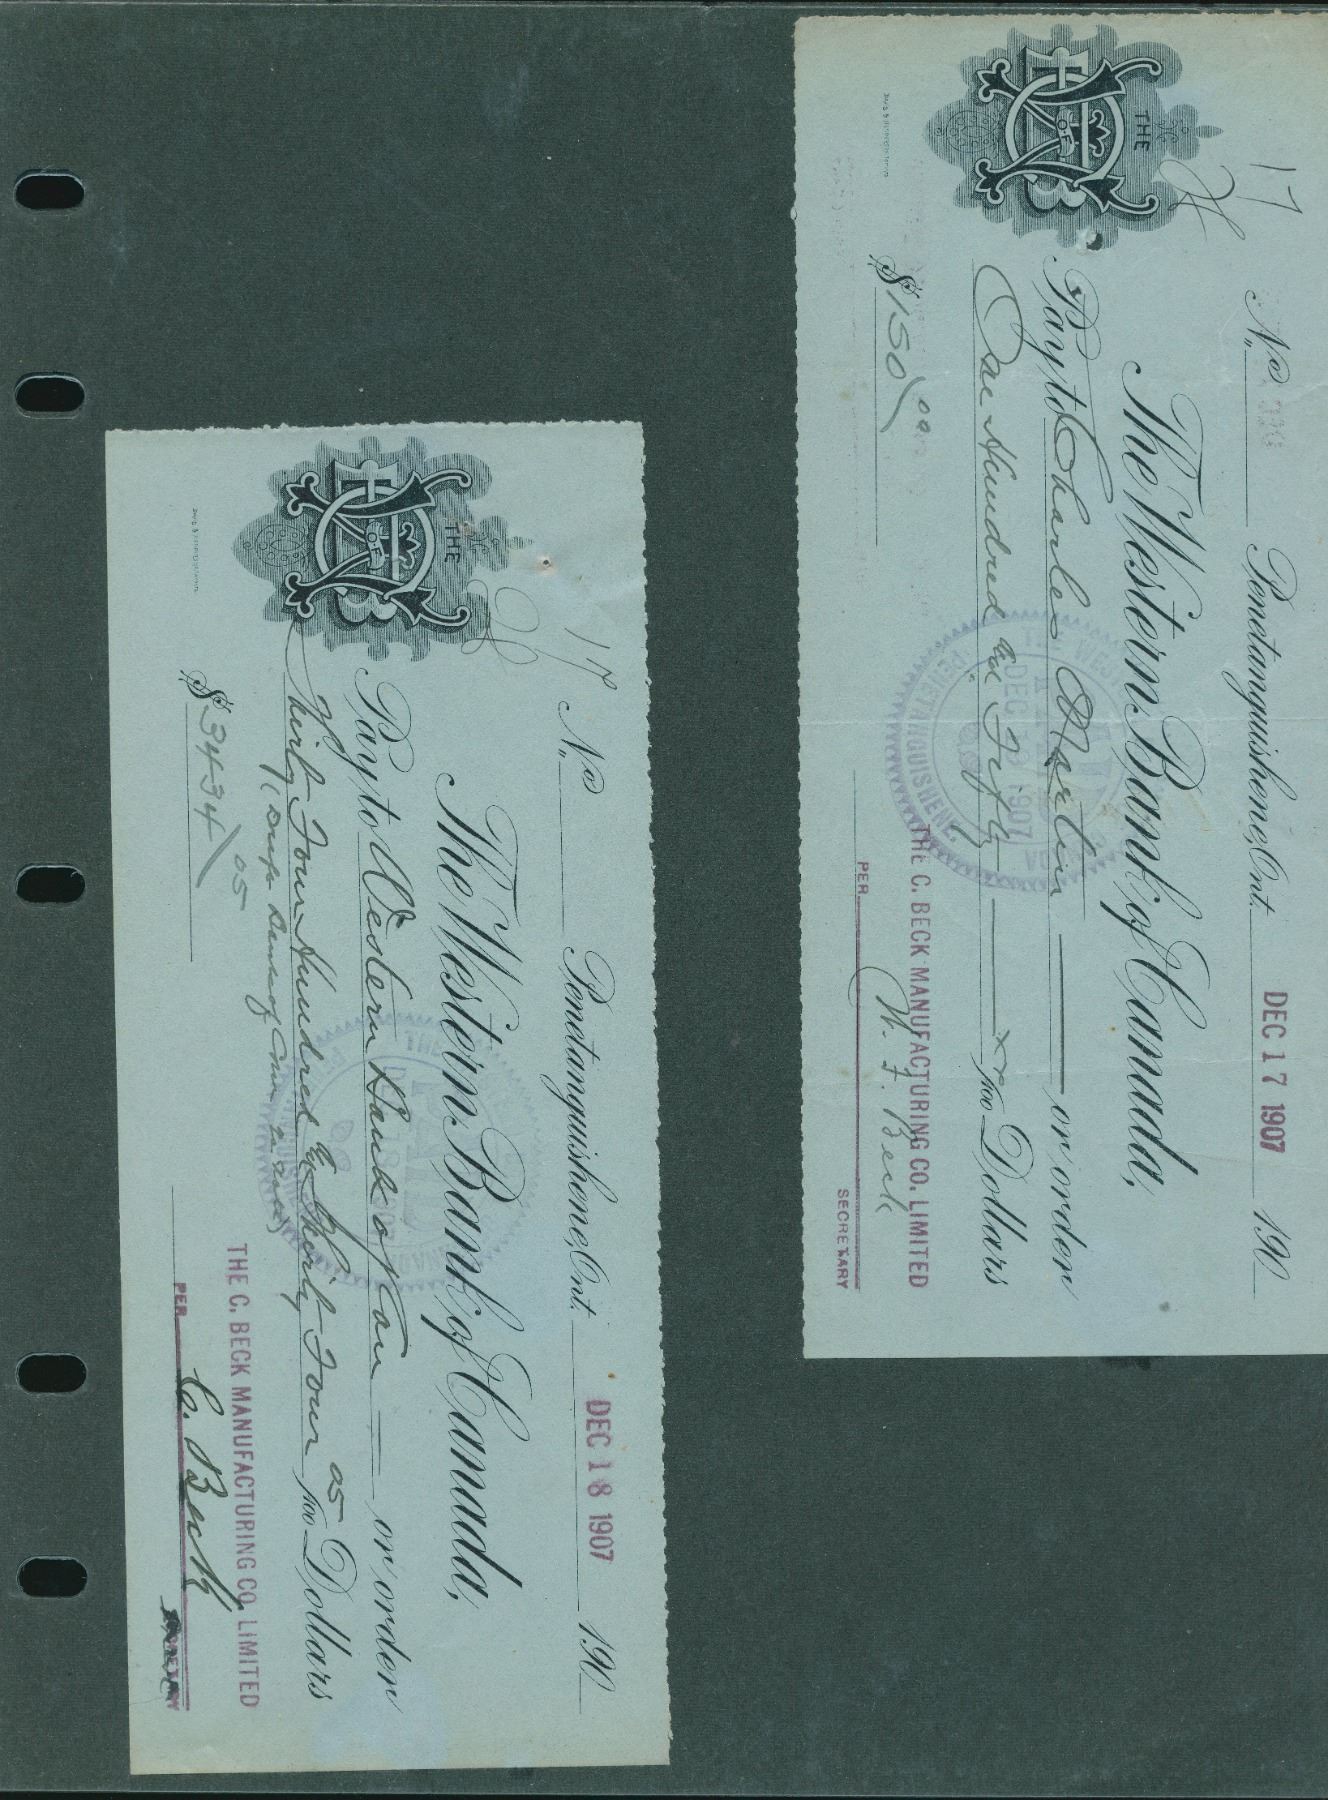 17
No.
Penetanguishene, Ont. DEC 17 1907 190
THE
OF
The Western Bank of Canada,
Pay to Charles Martin or order
One Hundred and Fifty xx/100 Dollars
$150 00
THE WESTERN BANK CANADA
DEC 18 1907
PENETANGUISHENE
THE C. BECK MANUFACTURING CO. LIMITED
PER W. F. Beck
SECRETARY
17
No.
Penetanguishene, Ont. DEC 18 1907 190
THE
OF
The Western Bank of Canada,
Pay to Western Bank of Can or order
Thirty Four Hundred & Thirty Four 05/100 Dollars
$3434 05
THE C. BECK MANUFACTURING CO. LIMITED
PER C. Beck